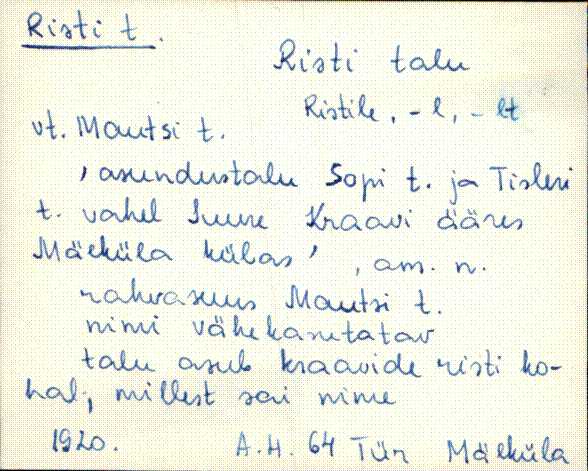 Risti t.
Risti talu
Ristile, -l, -lt
vt. Mautsi t.
, asundustalu Sopi t. ja Tisleri
t. vahel Suure Kraavi ääres
Mäeküla külas', am. n.
rahvasuus Mautsi t.
nimi vähekasutatav
talu asub kraavide risti ko-
hal, millest sai nime
1920. A.H. 64 Tür Mäeküla